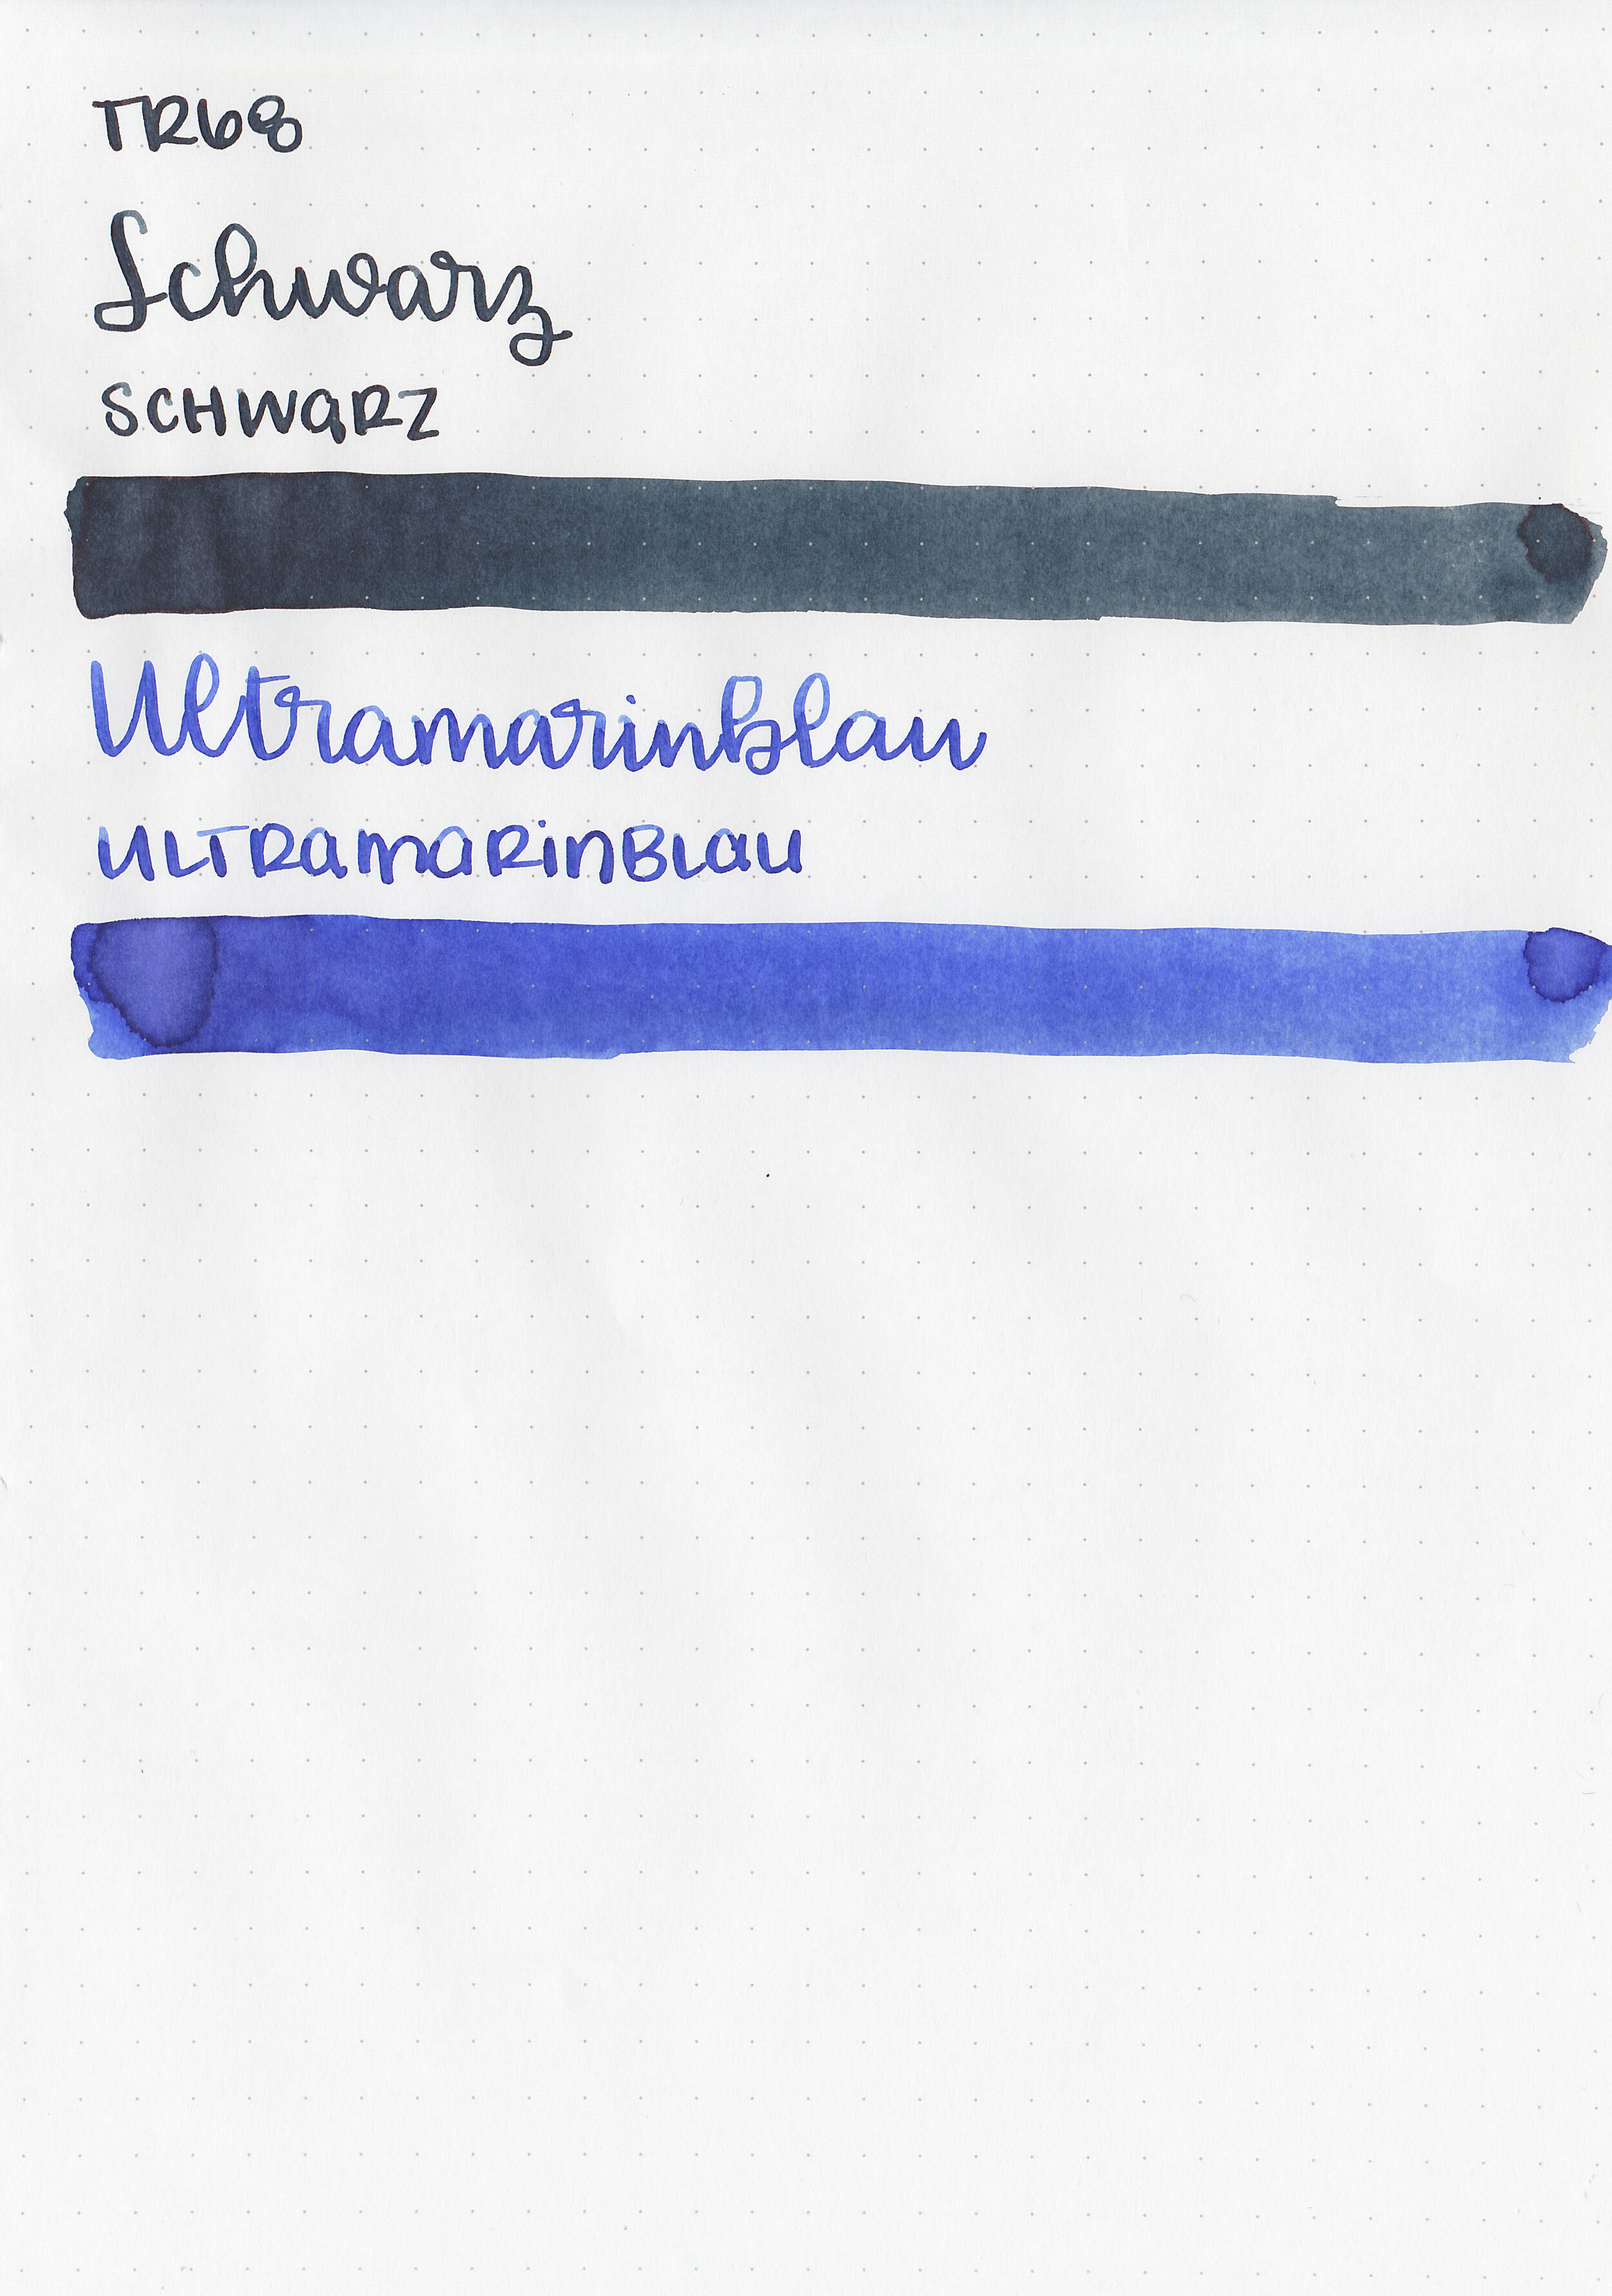 TR68
Schwarz
SCHWARZ
Ultramarinblau
ULTRAMARINBLAU